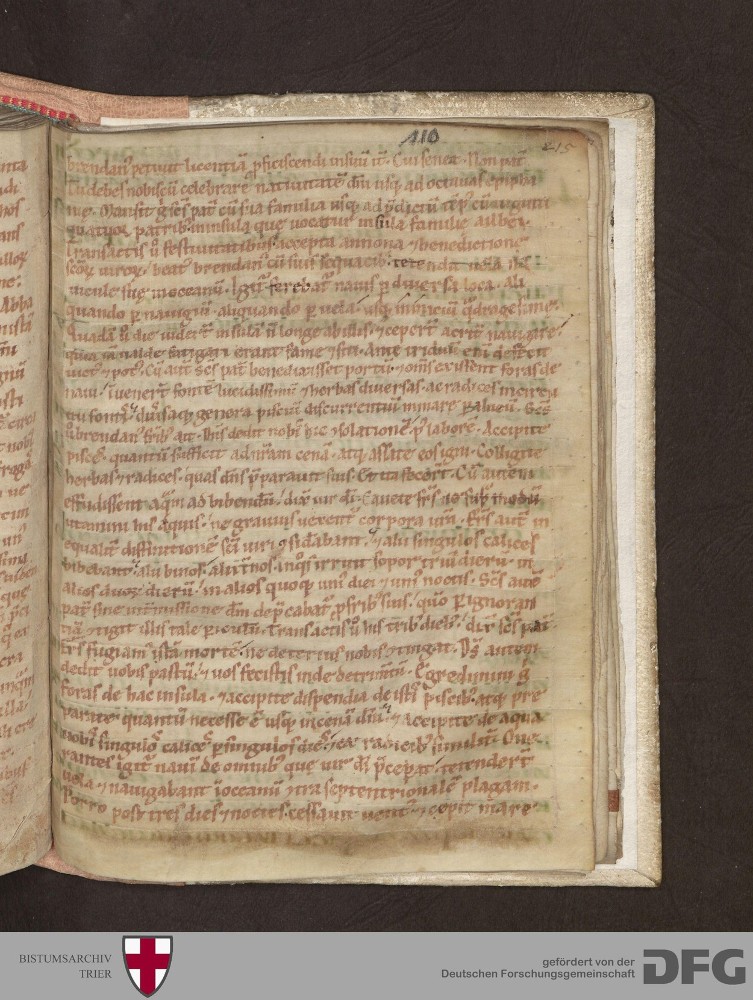 110
215
brendan' petiuit licentiā pficiscendi insuū it̄. Cui senex. Non pat̄.
Tu debes nobiscū celebrare natiuitatē dn̄i usq; ad octauas epipha
nie. Mansit g̊ scs̄ pat̄ cū sua familia usq; ad p̄dictū tēp' cū uiginti
quatuor patrib; in insula que uocatur insula familie ailbei.
Transactis ů festiuitatibus accepta annona ⁊ benedictione
scōꝝ uiroꝝ. beat' brendan' cū suis sequacib; tetendit uela na
uicule sue in oceanū. Igit̄ ferebat̄ nauis p diuersa loca. Ali
quando p nauigiū. aliquando p uela. usq; initiū q̄dragesime.
Quadā ů die uidert̄ insulā n̄ longe ab illis. ⁊ cepert̄ acrit̄ nauigare.
quia iā ualde fatigati erant fame ⁊ siti. Ante triduū eni defecit
uict' ⁊ pot'. Cū aut̄ scs̄ pat̄ benedixisset portū. ⁊ om̄s exissent foras de
naui. inuenert̄ fontē lucidissimū ⁊ herbas diuersas ac radices in circu
itu fontis. diuersaq; genera pisciū discurrentiū in mare p alueū. Scs̄
ů brendan' frīb; ait. Ds̄ dedit nobis hic ⁊solationē p' laborē. Accipite
pisces quantū sufficit ad nr̄am cenā. atq; assate eos igni. Colligite
herbas ⁊ radices. quas dn̄s p̄parauit suis. Et ita fecert̄. Cū autem
effudissent aquā ad bibendū. dix̄ uir di. Cauete fr̄s ne supra modū
utamini his aquis. ne grauius uexent̄ corpora ur̄a. Fr̄s aut̄ in
equalit̄ diffinitionē sc̄i uiri ⁊siderabant. ⁊ alii singulos calices
bibebant. alii binos. alii t̄nos. In q's irruit sopor triū dierū. in
alios duoꝝ dierū. in alios quoq; uni' diei ⁊ uni' noctis. Scs̄ aut̄
pat̄ sine int̄missione dm̄ dep̄cabat̄ p frīb; suis. quo p ignoran
tiā ⁊tigit illis tale piculū. Transactis ů his trib; dieb;. dix̄ scs̄ pat̄.
Fr̄s fugiam' istā mortē. ne deterius nobis ⁊tingat. Ds̄ autem
dedit uobis pastū. ⁊ uos fecistis inde detrim̄tū. Egredimini g̊
foras de hac insula. ⁊ accipite dispendia de istis piscib; atq; pre
parate quantū necesse ē usq; in cenā dn̄i. ⁊ accipite de aqua
nobis singulos calices p singulos dies. ⁊ ex radicib; similit̄. One
rantes igit̄ nauī de omnib; que uir di p̄cepat. tetendert̄
uela. ⁊ nauigabant in oceanū ⁊tra septentrionalē plagam.
Porro post tres dies ⁊ noctes. cessauit uent'. ⁊ cepit mare
BISTUMSARCHIV
TRIER
gefördert von der
Deutschen Forschungsgemeinschaft
DFG